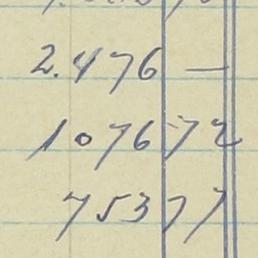 2.476 —
1076 72
753 77